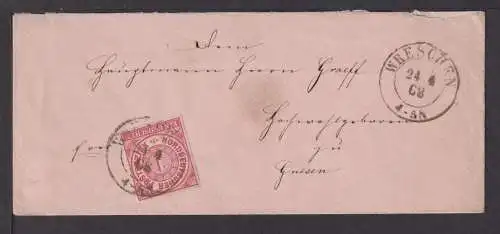 Dem
Hauptmann Herrn Graeff
Hochwohlgeboren
zu
Gnesen
frei
WRESCHEN
24 4
68
4-5N
NORDDEUTSCHER POSTBEZIRK
1